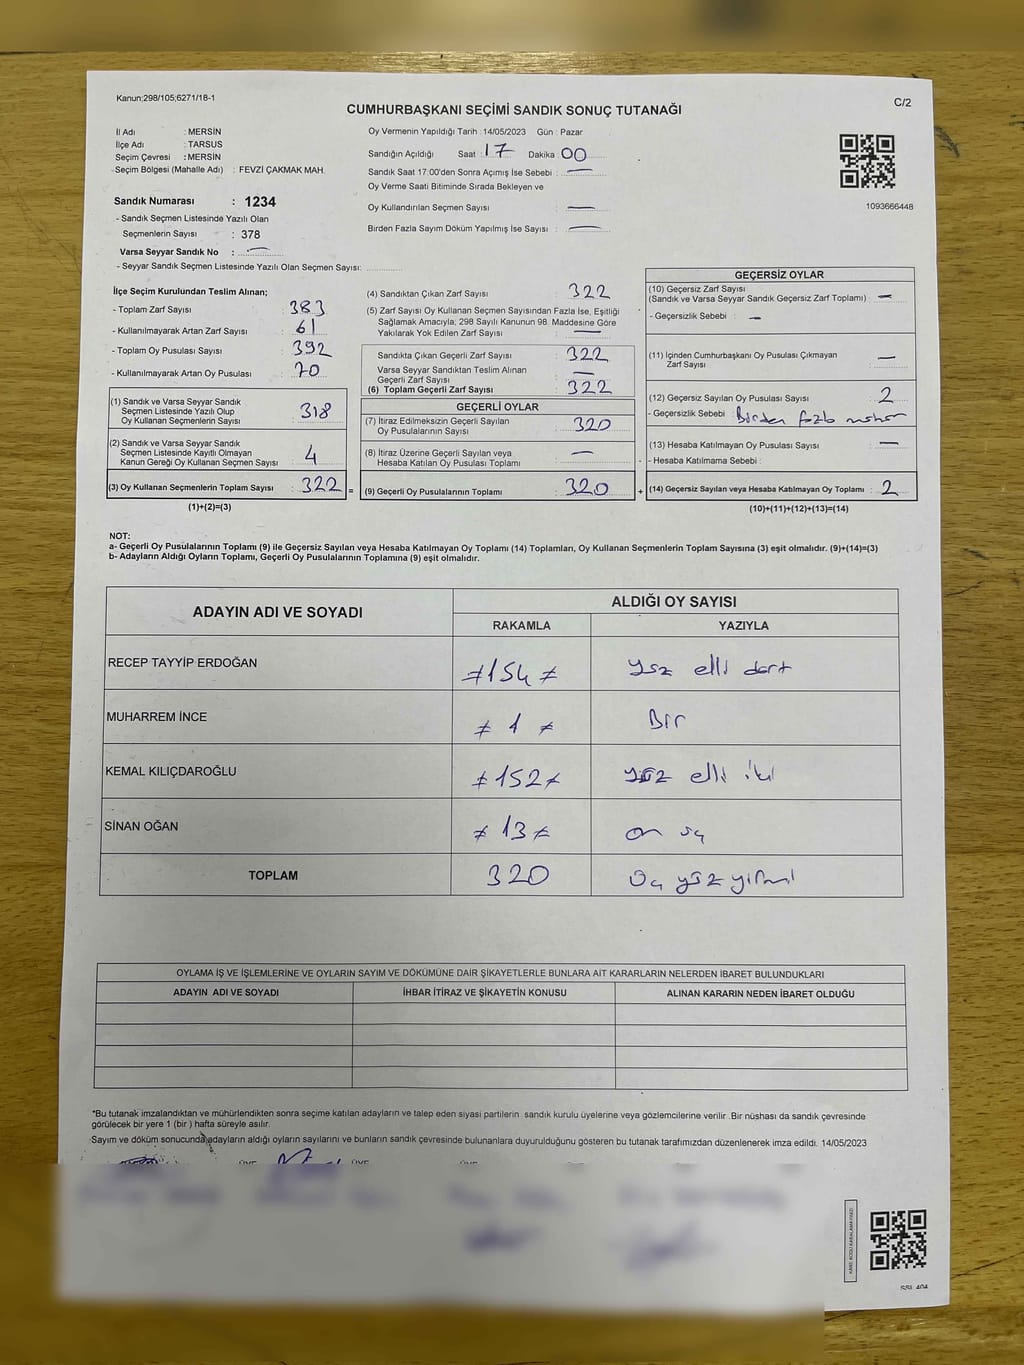 Kanun;298/105;6271/18-1
CUMHURBAŞKANI SEÇİMİ SANDIK SONUÇ TUTANAĞI
C/2
İl Adı : MERSİN
İlçe Adı : TARSUS
Seçim Çevresi : MERSİN
Seçim Bölgesi (Mahalle Adı) : FEVZİ ÇAKMAK MAH.
Sandık Numarası : 1234
- Sandık Seçmen Listesinde Yazılı Olan
Seçmenlerin Sayısı : 378
Varsa Seyyar Sandık No : —
- Seyyar Sandık Seçmen Listesinde Yazılı Olan Seçmen Sayısı:
Oy Vermenin Yapıldığı Tarih :14/05/2023 Gün : Pazar
Sandığın Açıldığı Saat : 17 Dakika : 00
Sandık Saat 17.00'den Sonra Açımış İse Sebebi : —
Oy Verme Saati Bitiminde Sırada Bekleyen ve
Oy Kullandırılan Seçmen Sayısı : —
Birden Fazla Sayım Döküm Yapılmış İse Sayısı : —
1093666448
İlçe Seçim Kurulundan Teslim Alınan;
- Toplam Zarf Sayısı : 383
- Kullanılmayarak Artan Zarf Sayısı : 61
- Toplam Oy Pusulası Sayısı : 392
- Kullanılmayarak Artan Oy Pusulası : 70
(1) Sandık ve Varsa Seyyar Sandık
Seçmen Listesinde Yazılı Olup
Oy Kullanan Seçmenlerin Sayısı : 318
(2) Sandık ve Varsa Seyyar Sandık
Seçmen Listesinde Kayıtlı Olmayan
Kanun Gereği Oy Kullanan Seçmen Sayısı : 4
(3) Oy Kullanan Seçmenlerin Toplam Sayısı : 322 =
(1)+(2)=(3)
(4) Sandıktan Çıkan Zarf Sayısı : 322
(5) Zarf Sayısı Oy Kullanan Seçmen Sayısından Fazla İse, Eşitliği
Sağlamak Amacıyla; 298 Sayılı Kanunun 98. Maddesine Göre
Yakılarak Yok Edilen Zarf Sayısı : —
Sandıkta Çıkan Geçerli Zarf Sayısı : 322
Varsa Seyyar Sandıktan Teslim Alınan
Geçerli Zarf Sayısı : —
(6) Toplam Geçerli Zarf Sayısı : 322
GEÇERLİ OYLAR
(7) İtiraz Edilmeksizin Geçerli Sayılan
Oy Pusulalarının Sayısı : 320
(8) İtiraz Üzerine Geçerli Sayılan veya
Hesaba Katılan Oy Pusulası Toplamı : —
(9) Geçerli Oy Pusulalarının Toplamı : 320 +
GEÇERSİZ OYLAR
(10) Geçersiz Zarf Sayısı
(Sandık ve Varsa Seyyar Sandık Geçersiz Zarf Toplamı) : —
- Geçersizlik Sebebi : —
(11) İçinden Cumhurbaşkanı Oy Pusulası Çıkmayan
Zarf Sayısı : —
(12) Geçersiz Sayılan Oy Pusulası Sayısı : 2
- Geçersizlik Sebebi : Birden fazla mühür
(13) Hesaba Katılmayan Oy Pusulası Sayısı : —
- Hesaba Katılmama Sebebi :
(14) Geçersiz Sayılan veya Hesaba Katılmayan Oy Toplamı : 2
(10)+(11)+(12)+(13)=(14)
NOT:
a- Geçerli Oy Pusulalarının Toplamı (9) ile Geçersiz Sayılan veya Hesaba Katılmayan Oy Toplamı (14) Toplamları, Oy Kullanan Seçmenlerin Toplam Sayısına (3) eşit olmalıdır. (9)+(14)=(3)
b- Adayların Aldığı Oyların Toplamı, Geçerli Oy Pusulalarının Toplamına (9) eşit olmalıdır.
ADAYIN ADI VE SOYADI
ALDIĞI OY SAYISI
RAKAMLA YAZIYLA
RECEP TAYYİP ERDOĞAN ≠154≠ yüz elli dört
MUHARREM İNCE ≠ 1 ≠ Bir
KEMAL KILIÇDAROĞLU ≠152≠ yüz elli iki
SİNAN OĞAN ≠ 13 ≠ on üç
TOPLAM 320 Üç yüz yirmi
OYLAMA İŞ VE İŞLEMLERİNE VE OYLARIN SAYIM VE DÖKÜMÜNE DAİR ŞİKAYETLERLE BUNLARA AİT KARARLARIN NELERDEN İBARET BULUNDUKLARI
ADAYIN ADI VE SOYADI İHBAR İTİRAZ VE ŞİKAYETİN KONUSU ALINAN KARARIN NEDEN İBARET OLDUĞU
*Bu tutanak imzalandıktan ve mühürlendikten sonra seçime katılan adayların ve talep eden siyasi partilerin sandık kurulu üyelerine veya gözlemcilerine verilir. Bir nüshası da sandık çevresinde
görülecek bir yere 1 (bir ) hafta süreyle asılır.
Sayım ve döküm sonucunda adayların aldığı oyların sayılarını ve bunların sandık çevresinde bulunanlara duyurulduğunu gösteren bu tutanak tarafımızdan düzenlenerek imza edildi. 14/05/2023
ÜYE ÜYE ÜYE